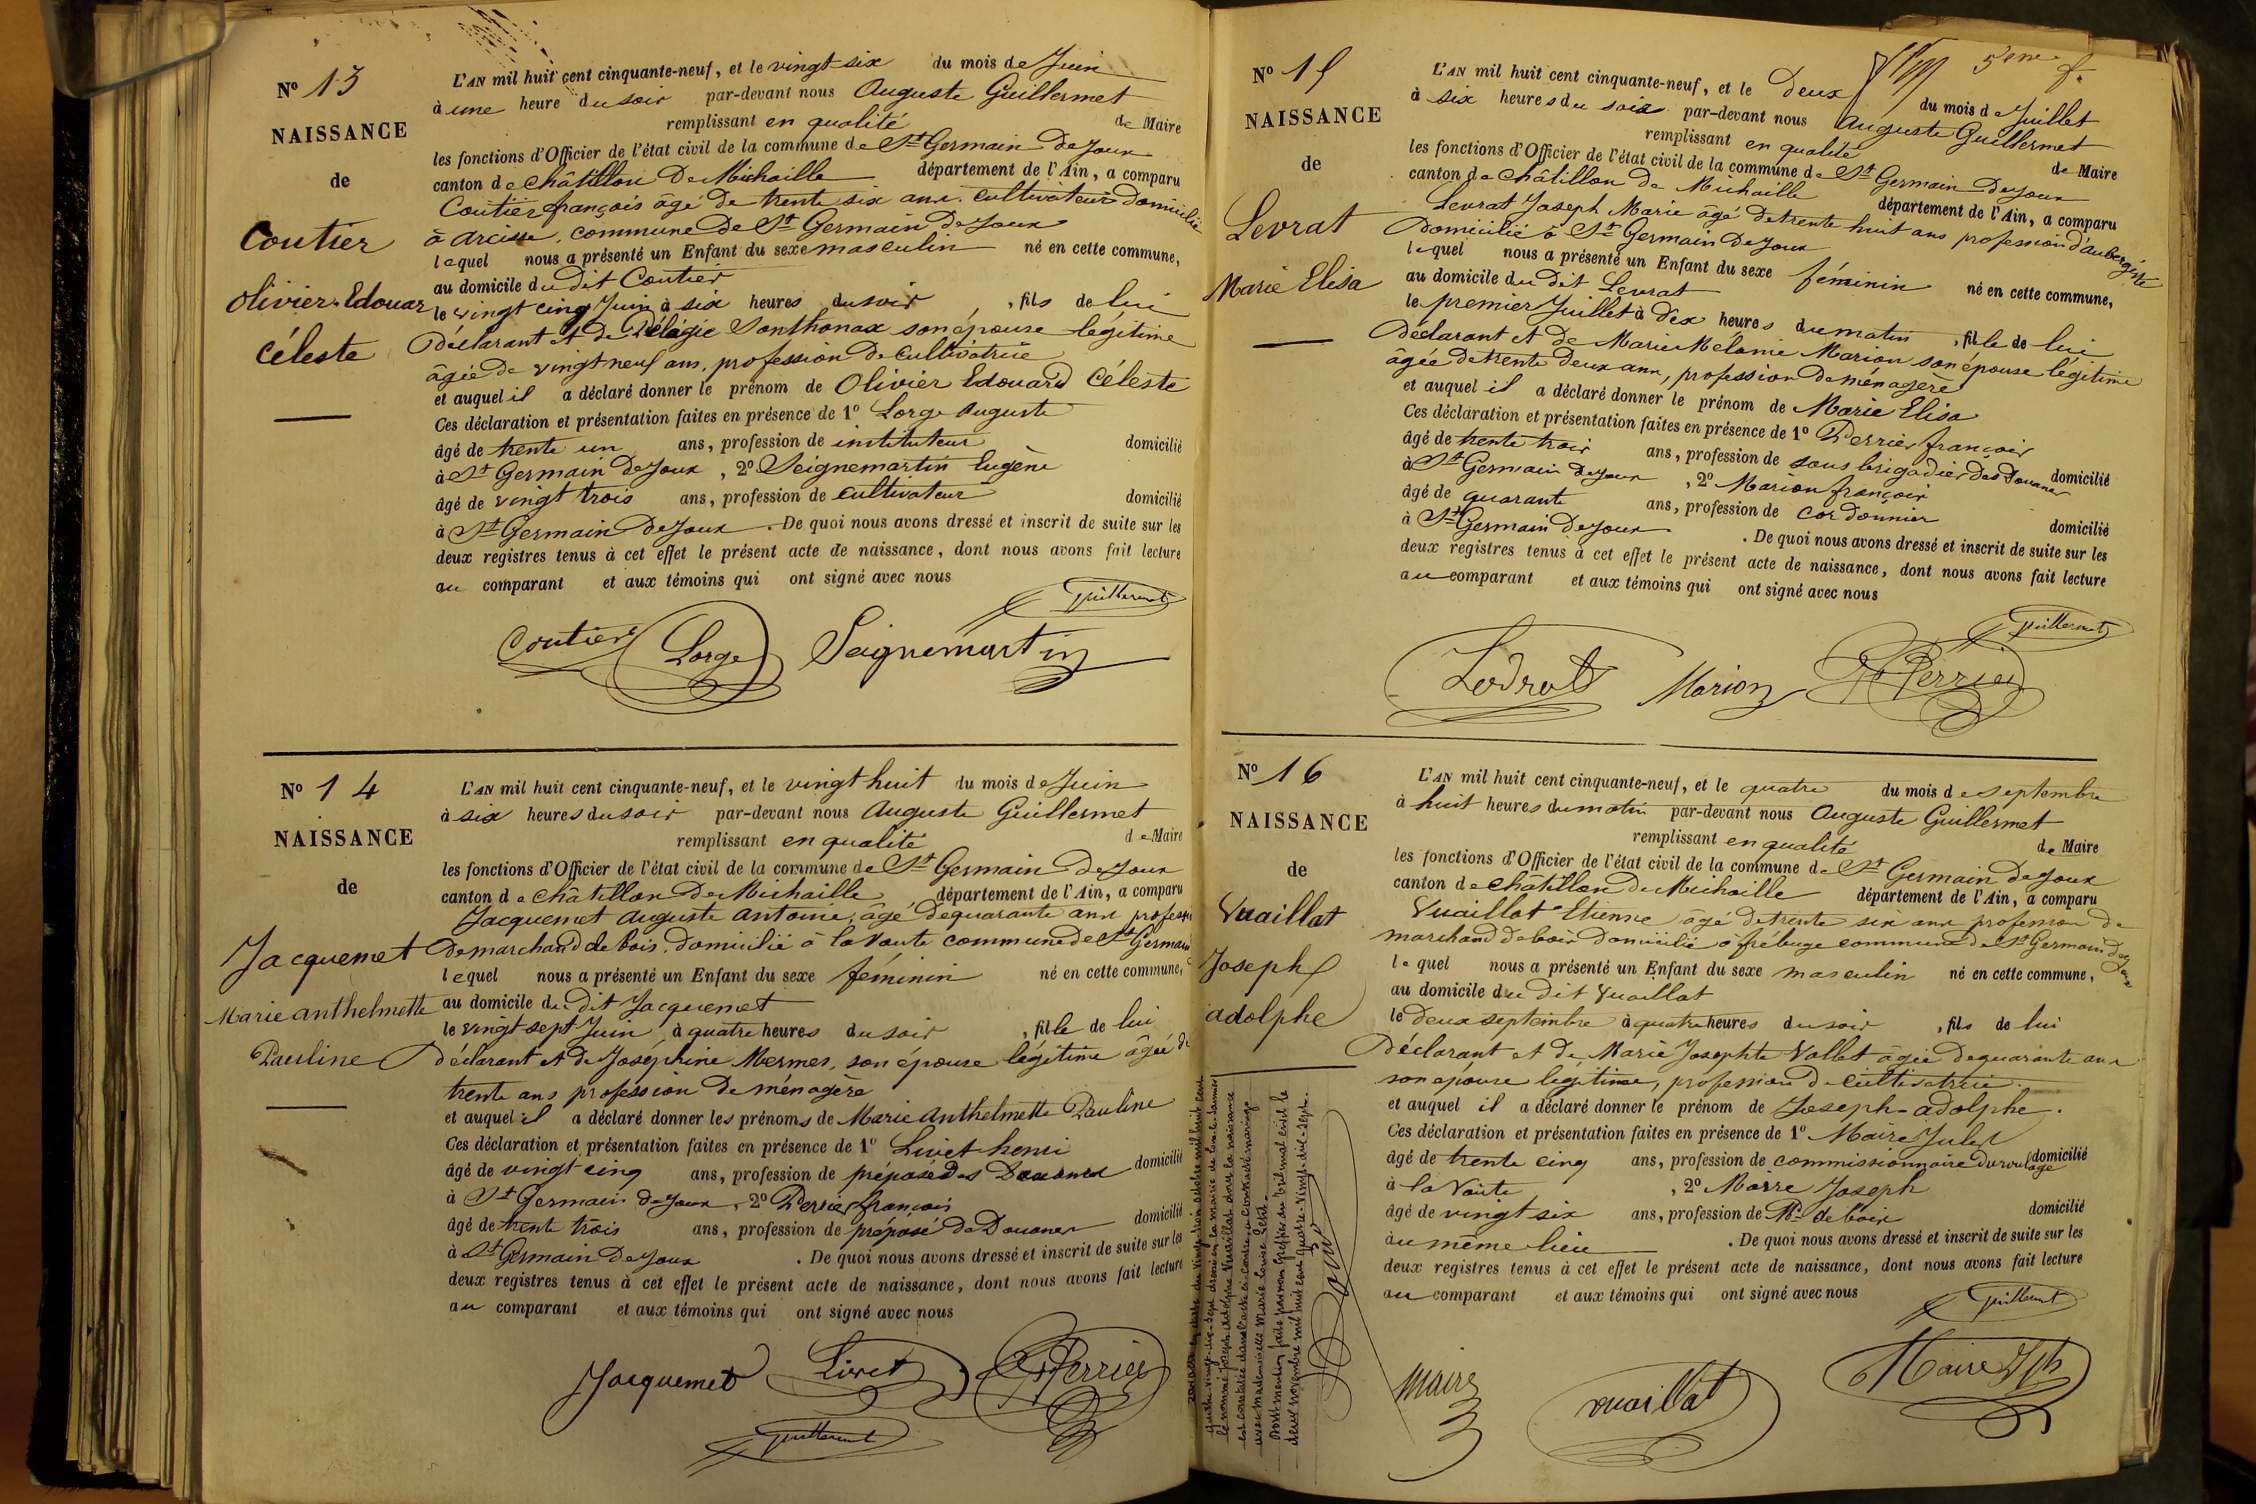 Nº 13
NAISSANCE
de
Coutier
Olivier Edouar
Céleste
L'AN mil huit cent cinquante-neuf, et le vingt-six du mois de Juin
à une heure du soir par-devant nous Auguste Guillermet
remplissant en qualité de Maire
les fonctions d'Officier de l'état civil de la commune de St Germain de Joux
canton de Châtillon De Michaille département de l'Ain, a comparu
Coutier françois âgé de trente six ans cultivateur domicilié
à arcisse, commune De St Germain De Joux
lequel nous a présenté un Enfant du sexe masculin né en cette commune,
au domicile du dit Coutier
le vingt cinq Juin à six heures du soir, fils de lui
Déclarant et de Pélagie Sonthonax son épouse légitime
âgée de vingt neuf ans, profession De cultivatrice
et auquel il a déclaré donner le prénom de Olivier Edouard Céleste
Ces déclaration et présentation faites en présence de 1º Lorge Auguste
âgé de trente un ans, profession de instituteur domicilié
à St Germain De Joux, 2º Seignemartin Eugène
âgé de vingt trois ans, profession de cultivateur domicilié
à St Germain De Joux. De quoi nous avons dressé et inscrit de suite sur les
deux registres tenus à cet effet le présent acte de naissance, dont nous avons fait lecture
au comparant et aux témoins qui ont signé avec nous
Guillermet
Coutier Lorge Seignemartin
Nº 14
NAISSANCE
de
Jacquemet
Marie anthelmette
Pauline
L'AN mil huit cent cinquante-neuf, et le vingt huit du mois de Juin
à six heures du soir par-devant nous Auguste Guillermet
remplissant en qualité de Maire
les fonctions d'Officier de l'état civil de la commune de St Germain De Joux
canton de Châtillon De Michaille département de l'Ain, a comparu
Jacquemet Auguste Antoine, âgé De quarante ans professi
De marchand de bois, domicilié à la Voute commune de St Germain
lequel nous a présenté un Enfant du sexe féminin né en cette commune,
au domicile du dit Jacquemet
le vingt sept Juin à quatre heures du soir, fille de lui
déclarant et de Joséphine Mermet, son épouse légitime âgée de
trente ans profession De ménagère
et auquel il a déclaré donner les prénoms de Marie Anthelmette Pauline
Ces déclaration et présentation faites en présence de 1º Livet henri
âgé de vingt cinq ans, profession de préposé des Douanes domicilié
à St Germain de Joux, 2º Perrier françois
âgé de trente trois ans, profession de préposé De Douanes domicilié
à St Germain De Joux. De quoi nous avons dressé et inscrit de suite sur les
deux registres tenus à cet effet le présent acte de naissance, dont nous avons fait lecture
au comparant et aux témoins qui ont signé avec nous
Jacquemet Livet Perrier
Guillermet
5eme f.
Nº 15
NAISSANCE
de
Levrat
Marie Elisa
L'AN mil huit cent cinquante-neuf, et le Deux du mois de Juillet
à six heures du soir par-devant nous Auguste Guillermet
remplissant en qualité de Maire
les fonctions d'Officier de l'état civil de la commune de St Germain De Joux
canton de Châtillon de Michaille département de l'Ain, a comparu
Levrat Joseph Marie âgé De trente huit ans profession d'aubergiste
Domicilié à St Germain De Joux
lequel nous a présenté un Enfant du sexe féminin né en cette commune,
au domicile du dit Levrat
le premier Juillet à dix heures du matin, fille de lui
Déclarant et de Marie Mélanie Marion son épouse légitime
âgée de trente Deux ans, profession De ménagère
et auquel il a déclaré donner le prénom de Marie Elisa
Ces déclaration et présentation faites en présence de 1º Perrier françois
âgé de trente trois ans, profession de sous brigadier Des Douanes domicilié
à St Germain De Joux, 2º Marion françois
âgé de quarante ans, profession de cordonnier domicilié
à St Germain De Joux. De quoi nous avons dressé et inscrit de suite sur les
deux registres tenus à cet effet le présent acte de naissance, dont nous avons fait lecture
au comparant et aux témoins qui ont signé avec nous
Guillermet
Marion Perrier
Nº 16
NAISSANCE
de
Vuaillat
Joseph
adolphe
L'AN mil huit cent cinquante-neuf, et le quatre du mois de septembre
à huit heures du matin par-devant nous Auguste Guillermet
remplissant en qualité de Maire
les fonctions d'Officier de l'état civil de la commune de St Germain De Joux
canton de Châtillon De Michaille département de l'Ain, a comparu
Vuaillat Etienne âgé De trente six ans profession De
marchand De bois Domicilié à frébuge commune De St Germain De Joux
lequel nous a présenté un Enfant du sexe masculin né en cette commune,
au domicile du dit Vuaillat
le deux septembre à quatre heures du soir, fils de lui
Déclarant et De Marie Josephte Vallet âgée De quarante ans
son épouse légitime, profession De cultivatrice
et auquel il a déclaré donner le prénom de Joseph-adolphe.
Ces déclaration et présentation faites en présence de 1º Maire Jules
âgé de trente cinq ans, profession de commissionnaire Du roulage domicilié
à la Voute, 2º Maire Joseph
âgé de vingt six ans, profession de Md de bois domicilié
au même lieu. De quoi nous avons dressé et inscrit de suite sur les
deux registres tenus à cet effet le présent acte de naissance, dont nous avons fait lecture
au comparant et aux témoins qui ont signé avec nous
Guillermet
Maire Vuaillat Maire Jph
le nommé Joseph Adolphe Vuaillat dont la naissance
est constatée dans l'acte ci-contre a contracté mariage
avec mademoiselle Marie Louise Petit.
Dont mention faite par mon greffier du tribunal civil le
deux novembre mil huit cent quatre-vingt-dix-sept.